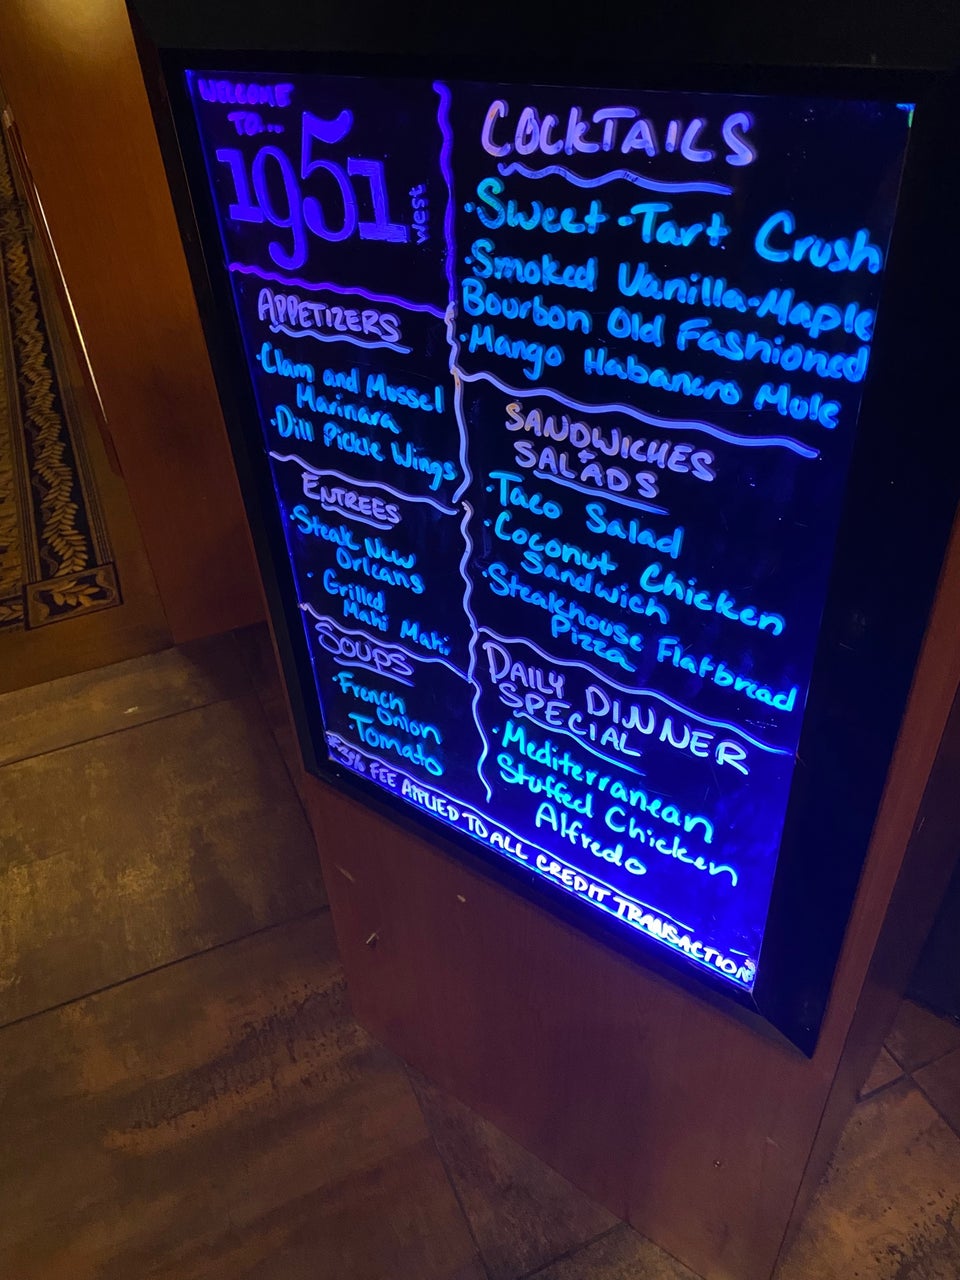 WELCOME
TO...
1951
west
APPETIZERS
·Clam and Mussel
Marinara
·Dill Pickle Wings
ENTREES
·Steak New
Orleans
·Grilled
Mahi Mahi
SOUPS
·French
Onion
·Tomato
COCKTAILS
·Sweet-Tart Crush
·Smoked Vanilla-Maple
Bourbon Old Fashioned
·Mango Habanero Mule
SANDWICHES
+
SALADS
·Taco Salad
·Coconut Chicken
Sandwich
·Steakhouse Flatbread
Pizza
DAILY DINNER
SPECIAL
·Mediterranean
Stuffed Chicken
Alfredo
FEE APPLIED TO ALL CREDIT TRANSACTIONS